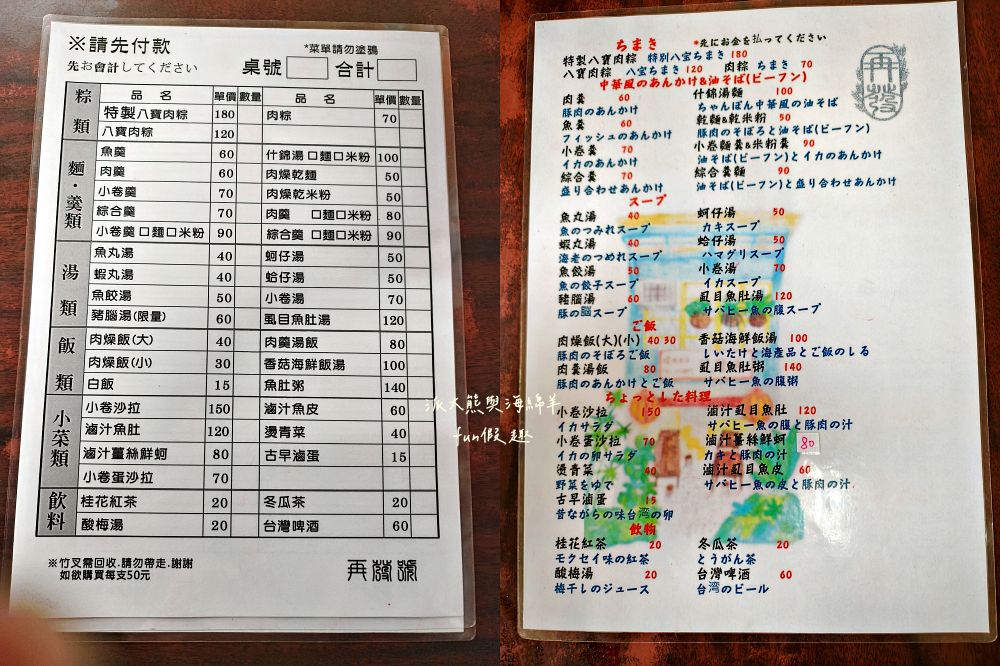 ※請先付款
*菜單請勿塗鴉
先お會計してください
桌號 合計
品 名 單價 數量 品 名 單價 數量
粽類
特製八寶肉粽 180 肉粽 70
八寶肉粽 120
麵・羹類
魚羹 60 什錦湯口麵口米粉 100
肉羹 60 肉燥乾麵 50
小卷羹 70 肉燥乾米粉 50
綜合羹 70 肉羹 口麵口米粉 80
小卷羹口麵口米粉 90 綜合羹 口麵口米粉 90
湯類
魚丸湯 40 蚵仔湯 50
蝦丸湯 40 蛤仔湯 50
魚餃湯 50 小卷湯 70
豬腦湯(限量) 60 虱目魚肚湯 120
飯類
肉燥飯(大) 40 肉羹湯飯 80
肉燥飯(小) 30 香菇海鮮飯湯 100
白飯 15 魚肚粥 140
小菜類
小卷沙拉 150 滷汁魚皮 60
滷汁魚肚 120 燙青菜 40
滷汁薑絲鮮蚵 80 古早滷蛋 15
小卷蛋沙拉 70
飲料
桂花紅茶 20 冬瓜茶 20
酸梅湯 20 台灣啤酒 60
※竹叉需回收.請勿帶走.謝謝
如欲購買每支50元
再發號
派大熊與海綿羊
fun假趣
ちまき *先にお金を払ってください
特製八寶肉粽 特別八宝ちまき 180
八寶肉粽 八宝ちまき 120 肉粽 ちまき 70
中華風のあんかけ&油そば(ビーフン)
再發
肉羹 60 什錦湯麵 100
豚肉のあんかけ ちゃんぽん中華風の油そば
魚羹 60 乾麵&乾米粉 50
フィッシュのあんかけ 豚肉のそぼろと油そば(ビーフン)
小卷羹 70 小卷麵羹&米粉羹 90
イカのあんかけ 油そば(ビーフン)とイカのあんかけ
綜合羹 70 綜合羹麵 90
盛り合わせあんかけ 油そば(ビーフン)と盛り合わせあんかけ
スープ
魚丸湯 40 蚵仔湯 50
魚のつみれスープ カキスープ
蝦丸湯 40 蛤仔湯 50
海老のつめれスープ ハマグリスープ
魚餃湯 50 小卷湯 70
魚の餃子スープ イカスープ
豬腦湯 60 虱目魚肚湯 120
豚の脳スープ サバヒー魚の腹スープ
ご飯
肉燥飯(大)(小) 40 30 香菇海鮮飯湯 100
豚肉のそぼろご飯 しいたけと海産品とご飯のしる
肉羹湯飯 80 虱目魚肚粥 140
豚肉のあんかけとご飯 サバヒー魚の腹粥
ちょっとした料理
小卷沙拉 150 滷汁虱目魚肚 120
イカサラダ サバヒー魚の腹と豚肉の汁
小卷蛋沙拉 70 滷汁薑絲鮮蚵 80
イカの卵サラダ カキと豚肉の汁
燙青菜 40 滷汁虱目魚皮 60
野菜をゆで サバヒー魚の皮と豚肉の汁
古早滷蛋 15
昔ながらの味台湾の卵
飲物
桂花紅茶 20 冬瓜茶 20
モクセイ味の紅茶 とうがん茶
酸梅湯 20 台灣啤酒 60
梅干しのジュース 台湾のビール